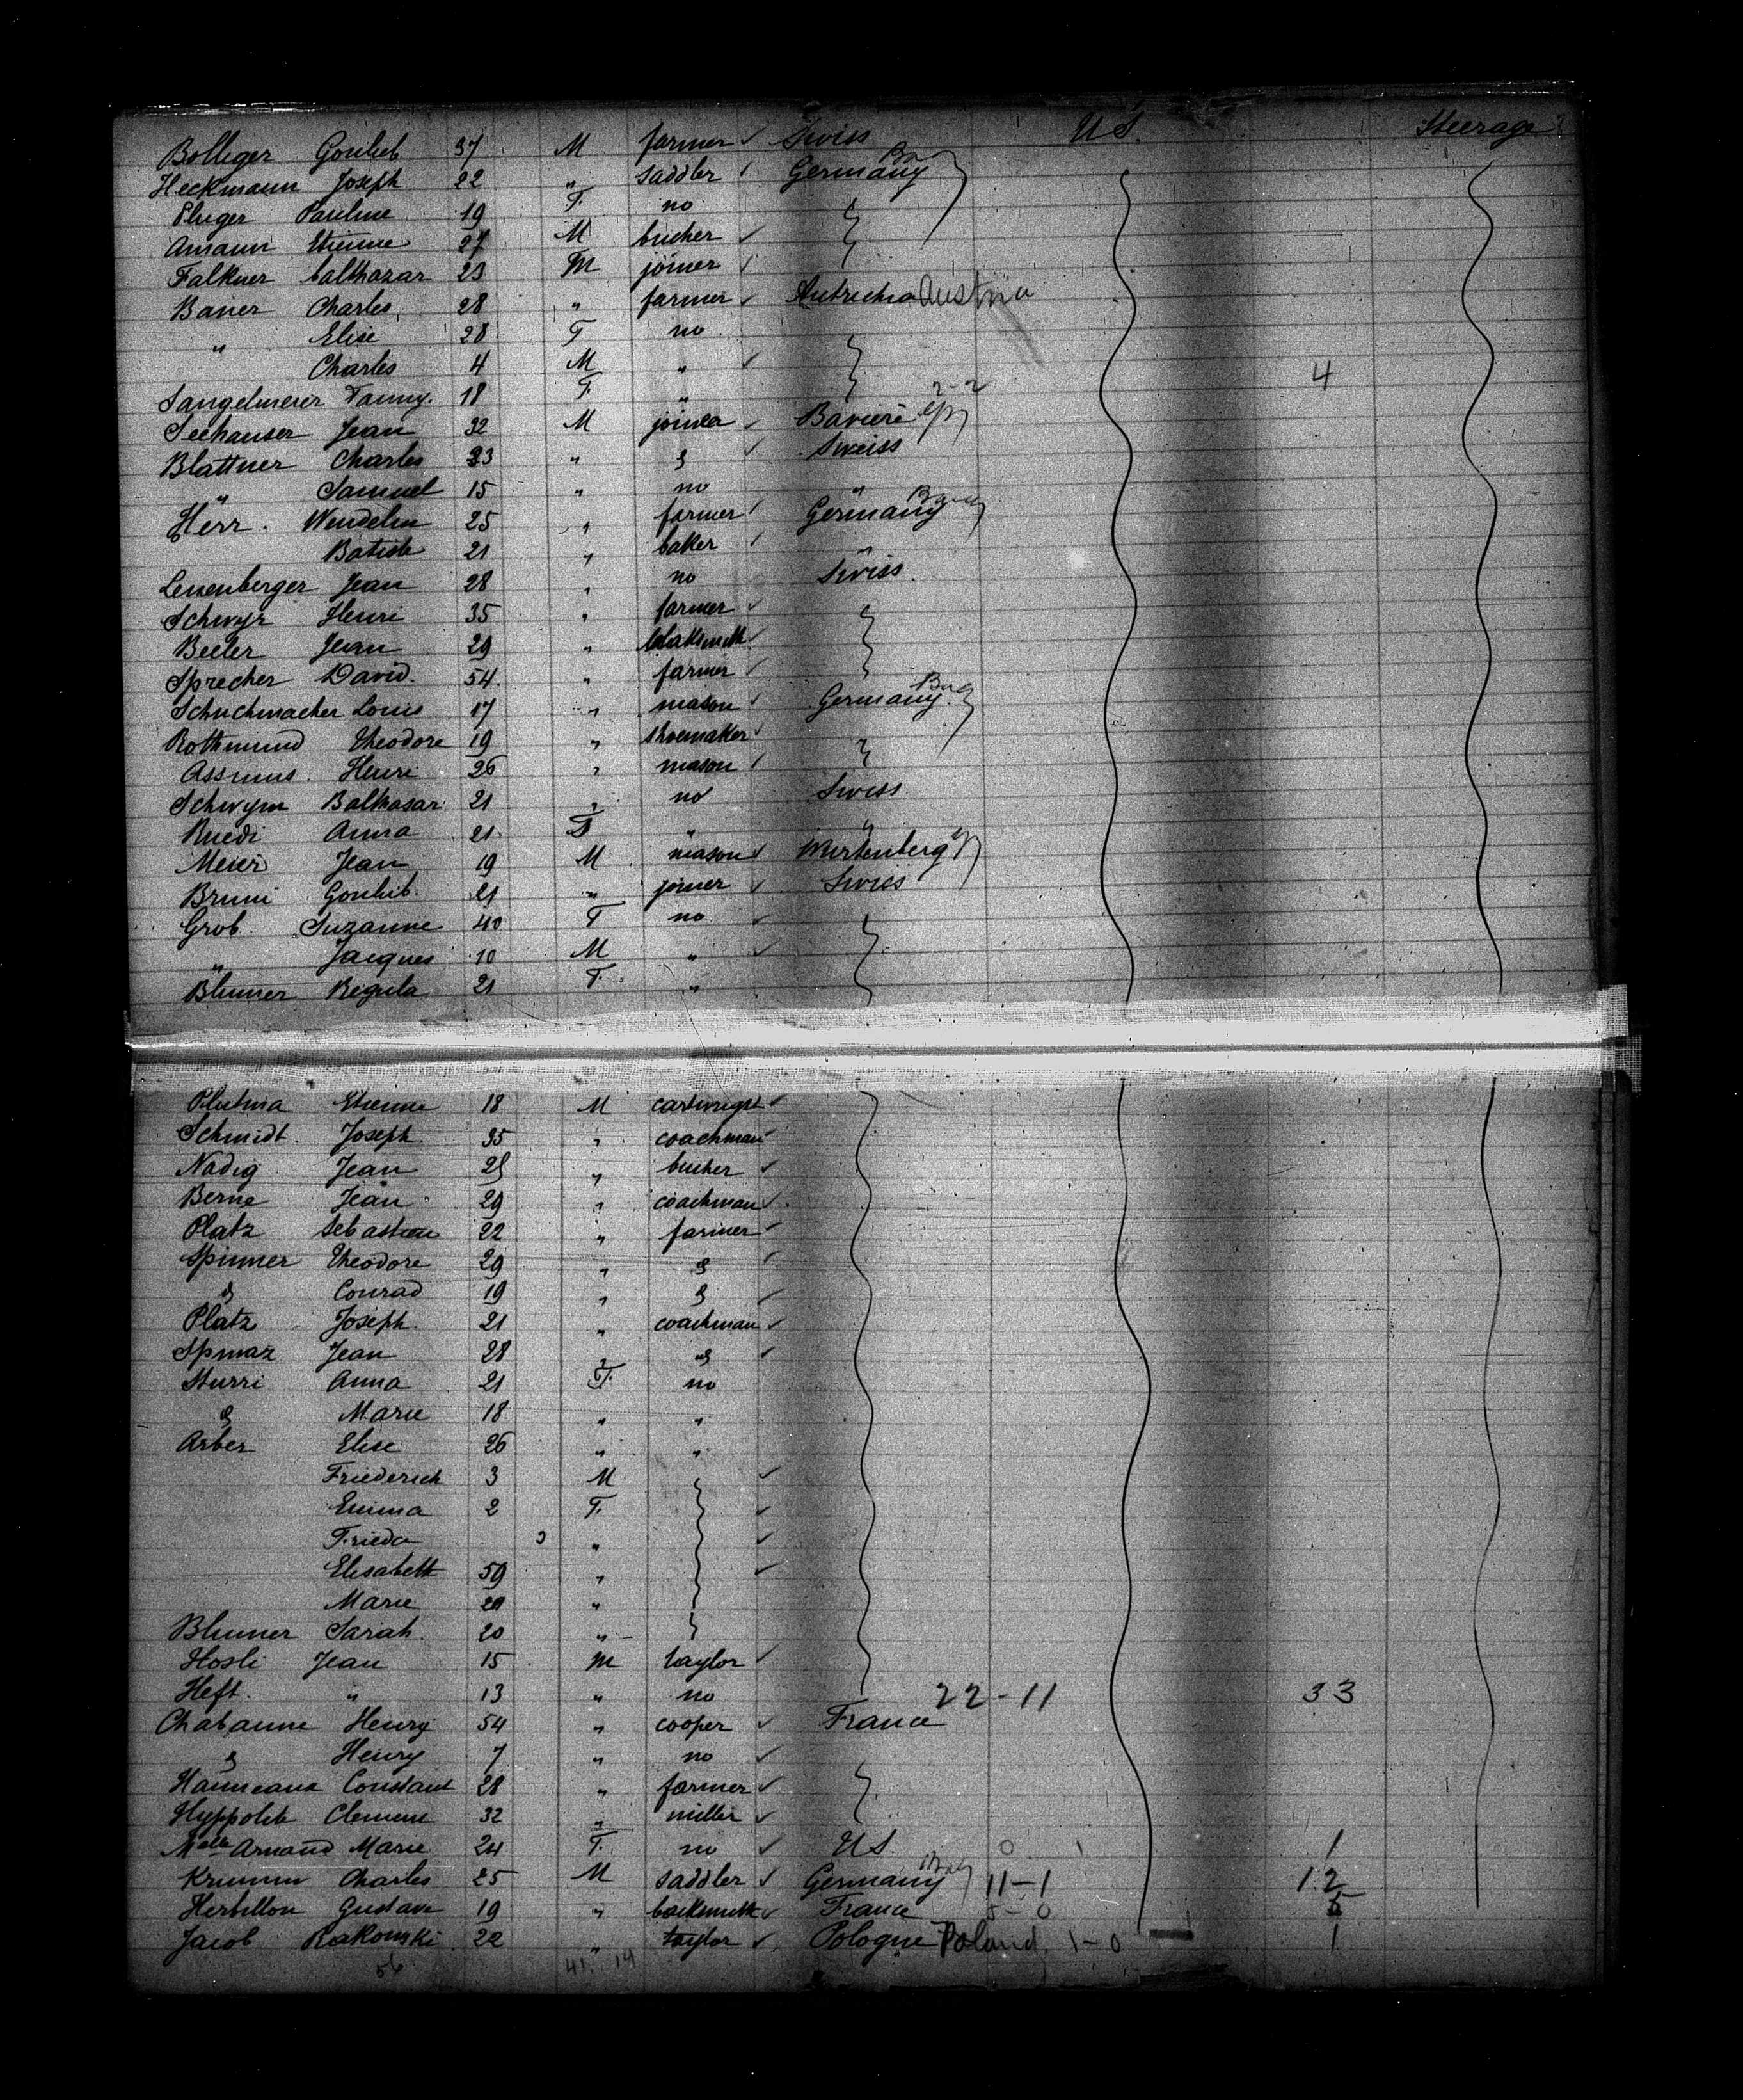 Bolliger Gottlieb 37 M farmer ✓ Swiss U S. Steerage
Heckmann Joseph 22 " saddler Germany
Pluger Pauline 19 F no
Amann Etienne 27 M bucher ✓
Falkner balthazar 23 M joiner
Baner Charles 28 " farmer ✓ Autricha Austria
" Elise 28 F no
Charles 4 M " ✓ 4
Sangelmeier Fanny. 18 F " 2-2
Seehauser Jean 32 M joiner ✓ Baviere
Blattner Charles 23 " ✓ Sweiss
" Samuel 15 " no "
Herr. Wendelin 25 " farmer Germany
Batiste 21 " baker "
Leuenberger Jean 28 " no Swiss.
Schwyz Henri 35 " farmer ✓
Beeler Jean 29 " blaksmith ✓
Sprecher David. 54. " farmer
Schuchmacher Louis 17 " mason ✓ Germany.
Rothmund Theodore 19 " shoemaker ✓
Assmus. Henri 26 " mason
Schwym Balthasar 21 " no Swiss
Ruedi Anna 21 F " "
Meier Jean 19 M mason ✓ Wurtenberg
Bruni Gottlieb. 21 " joiner ✓ Swiss
Grob Suzanne 40 F no ✓
" Jacques 10 M " ✓
Blumer Regula 21 F. "
Plutma Etienne 18 M cartwright ✓
Schmidt Joseph 35 " coachman
Nadig Jean 25 " bucher ✓
Berna Jean 29 " coachman ✓
Platz Sebastien 22 " farmer ✓
Spinner Theodore 29 "
Conrad 19 " ✓
Platz Joseph. 21 " coachman ✓
Spinaz Jean 28 " ✓
Sturri Anna 21 F. no
Marie 18 " "
Arber Elise 26 " "
Friederich 3 M ✓
Emma 2 F. ✓
Frieda 3 " ✓
Elisabeth 59 " ✓
Marie 20 "
Blumer Sarah. 20 "
Hosli Jean 15 M taylor ✓
Heft. " 13 " no 22-11 33
Chabanne Henry 54 " cooper ✓ France
Henry 7 " no ✓
Hanneaux Constant 28 " farmer ✓
Hyppolite Clement 32 " miller ✓
Melle Arnaud Marie 24 F. no ✓ U S. 0 1 1
Krumm Charles 25 M saddler ✓ Germany 11-1 12
Herbillon Gustave 19 " backsmith ✓ France 5-0 5
Jacob Rakowski 22 " taylor ✓ Pologne Poland. 1-0 1
56 41. 14